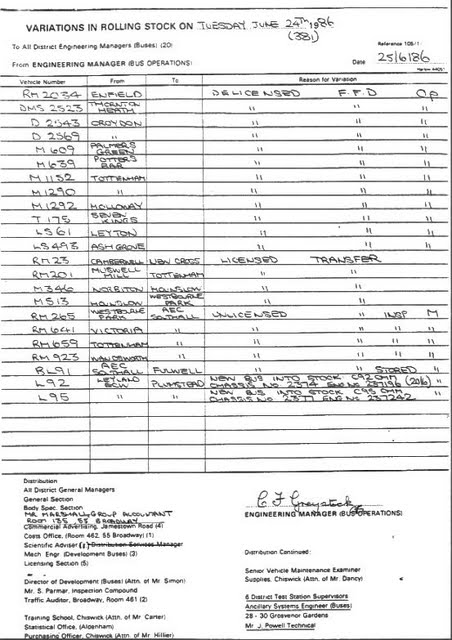 VARIATIONS IN ROLLING STOCK ON TUESDAY JUNE 24TH 1986
(381)
To All District Engineering Managers (Buses) (20)
Reference 105/1
From ENGINEERING MANAGER (BUS OPERATIONS)
Date 25/6/86
Vehicle Number From To Reason for Variation
RM 2034 ENFIELD DELICENSED F.F.D Op
DMS 2523 THORNTON HEATH " " "
D 2543 CROYDON " " "
D 2569 " " " "
M 609 PALMERS GREEN " " "
M 639 POTTERS BAR " " "
M 1152 TOTTENHAM " " "
M 1290 " " " "
M 1292 HOLLOWAY " " "
T 175 SEVEN KINGS " " "
LS 61 LEYTON " " "
LS 493 ASH GROVE " " "
RM 23 CAMBERWELL NEW CROSS LICENSED TRANSFER "
RM 201 MUSWELL HILL TOTTENHAM " " "
M 346 NORBITON HOUNSLOW " " "
M 513 HOUNSLOW WESTBOURNE PARK " " "
RM 265 WESTBOURNE PARK AEC SOUTHALL UNLICENSED " INSP M
RM 641 VICTORIA " " " " "
RM 659 TOTTENHAM " " " " "
RM 923 WANDSWORTH " " " " "
BL 91 AEC SOUTHALL FULWELL " STORED "
L 92 LEYLAND ECW PLUMSTEAD NEW BUS INTO STOCK C92 OMM CHASSIS NO 2374 ENG NO 237196 (20/6) "
L 95 " " NEW BUS INTO STOCK C95 OMM CHASSIS NO 2377 ENG NO 237242 "
Distribution
All District General Managers
General Section
Body Spec. Section
MR MARSHALL, GROUP ACCOUNTANT
ROOM 135, 55 BROADWAY
Commercial Advertising, Jamestown Road (4)
Costs Office, (Room 462, 55 Broadway) (1)
Scientific Adviser (1) Distribution Services Manager
Mech Engr (Development Buses) (3)
Licensing Section (5)
Director of Development (Buses) (Attn. of Mr Simon)
Mr. S. Parmar, Inspection Compound
Traffic Auditor, Broadway, Room 461 (2)
Training School, Chiswick (Attn. of Mr Carter)
Statistical Office, (Aldenham)
Purchasing Officer, Chiswick (Attn. of Mr Hillier)
C F Greystock
ENGINEERING MANAGER (BUS OPERATIONS)
Distribution Continued:
Senior Vehicle Maintenance Examiner
Supplies, Chiswick (Attn. of Mr Dancy)
6 District Test Station Supervisors
Ancillary Systems Engineer (Buses)
28 - 30 Grosvenor Gardens
Mr J. Powell Technical